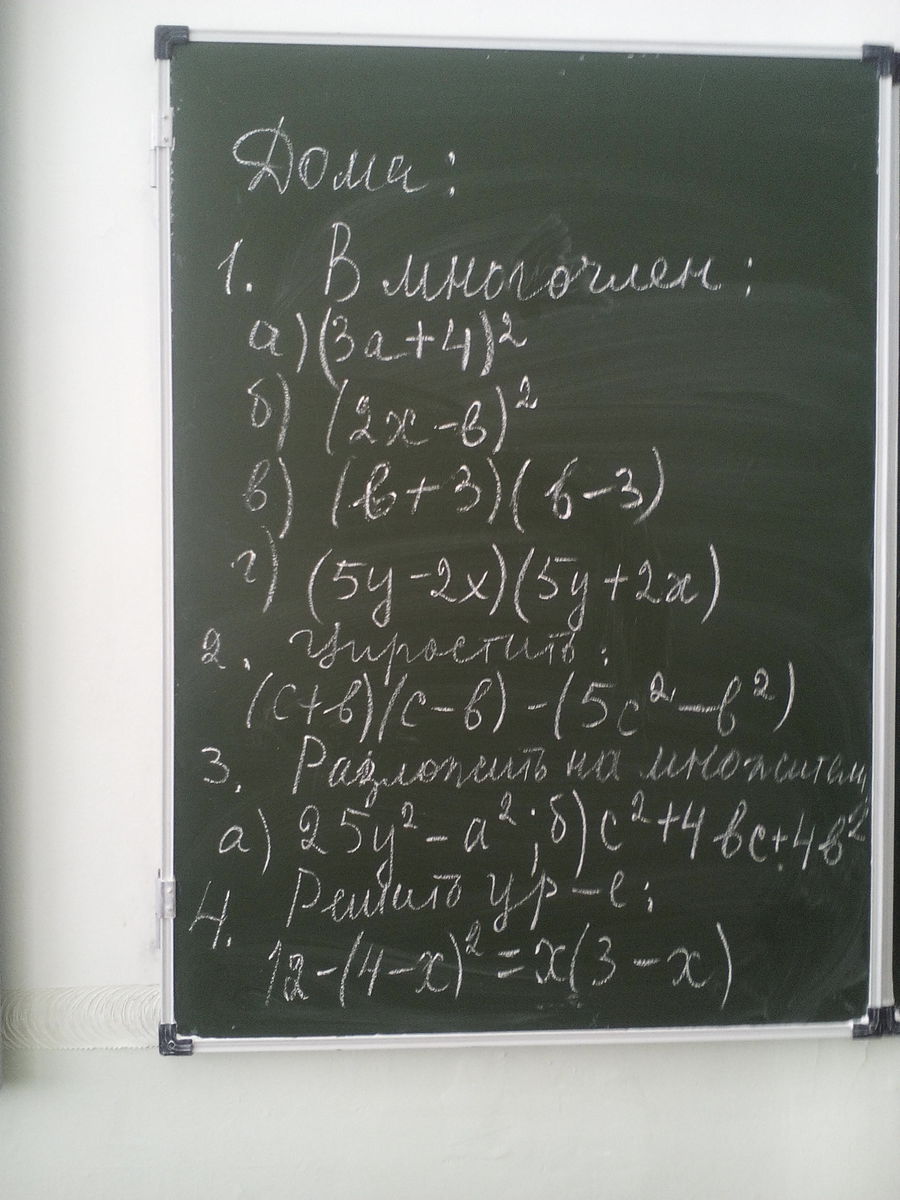 Дома:
1. В многочлен:
а) (3а+4)²
б) (2х-в)²
в) (в+3)(в-3)
г) (5у-2х)(5у+2х)
2. Упростить:
(с+в)(с-в)-(5с²-в²)
3. Разложить на множители
а) 25у²-а²; б) с²+4вс+4в²
4. Решить ур-е:
12-(4-х)²=х(3-х)